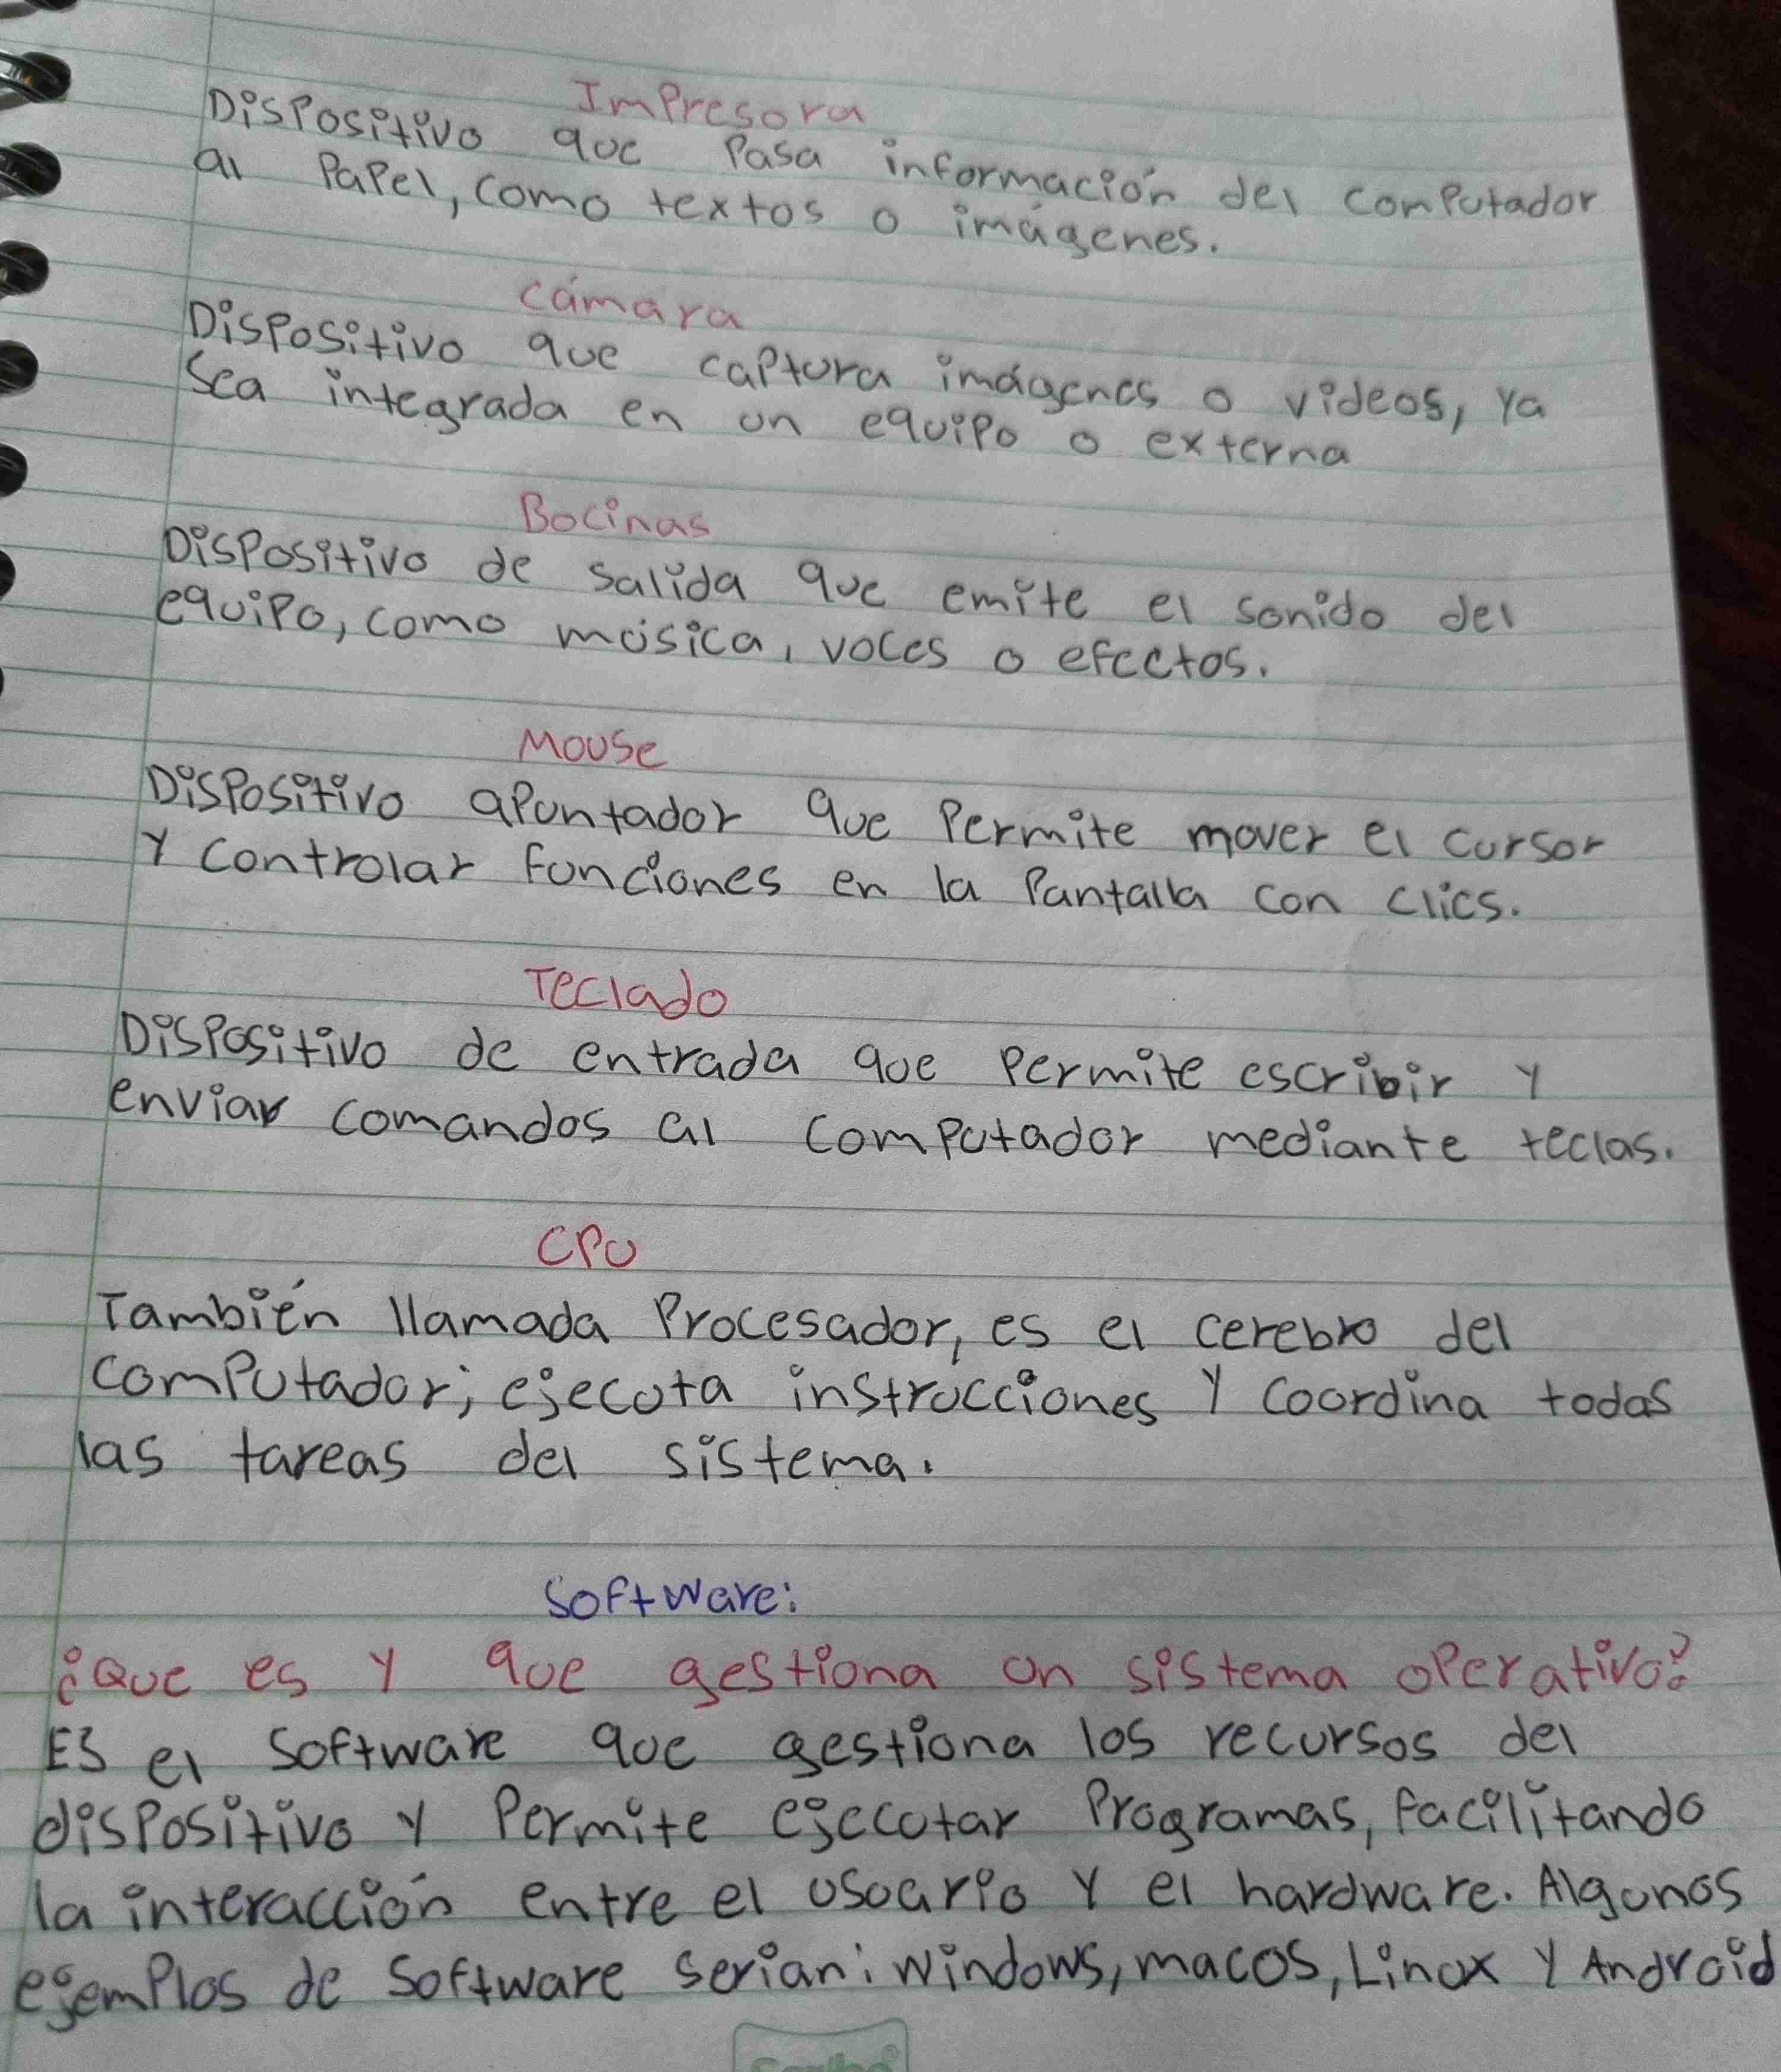 Impresora
Dispositivo que pasa información del computador
al papel, como textos o imágenes.
cámara
Dispositivo que captura imágenes o videos, ya
sea integrada en un equipo o externa
Bocinas
Dispositivo de salida que emite el sonido del
equipo, como música, voces o efectos.
Mouse
Dispositivo apuntador que permite mover el cursor
y controlar funciones en la pantalla con clics.
Teclado
Dispositivo de entrada que permite escribir y
enviar comandos al computador mediante teclas.
CPU
También llamada procesador, es el cerebro del
computador; ejecuta instrucciones y coordina todas
las tareas del sistema.
Software:
¿Que es y que gestiona un sistema operativo?
Es el software que gestiona los recursos del
dispositivo y permite ejecutar programas, facilitando
la interacción entre el usuario y el hardware. Algunos
ejemplos de software serian: windows, macos, Linux y Android